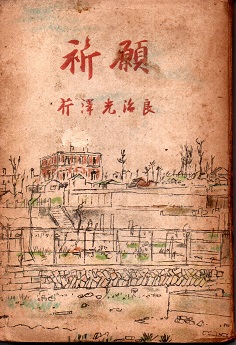 祈願
芹澤光治良